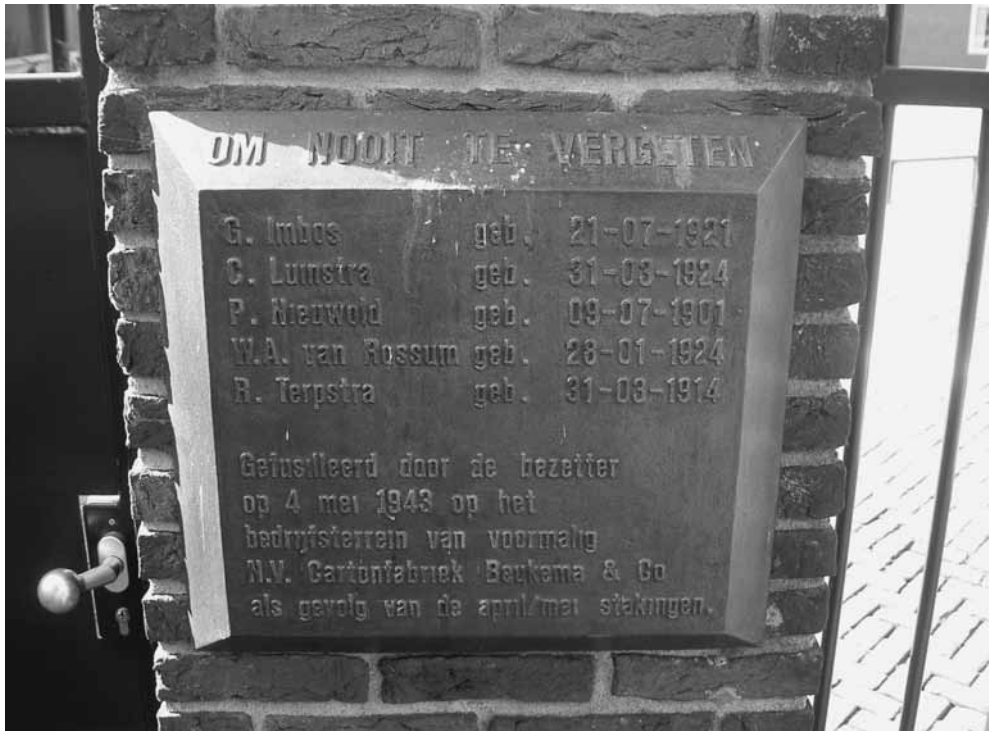 OM NOOIT TE VERGETEN
G. Imbos geb. 21-07-1921
C. Lumstra geb. 31-03-1924
P. Nieuwold geb. 09-07-1901
W.A. van Rossum geb. 28-01-1924
R. Terpstra geb. 31-03-1914
Gefusilleerd door de bezetter
op 4 mei 1943 op het
bedrijfsterrein van voormalig
N.V. Cartonfabriek Beukema & Co
als gevolg van de april/mei stakingen.